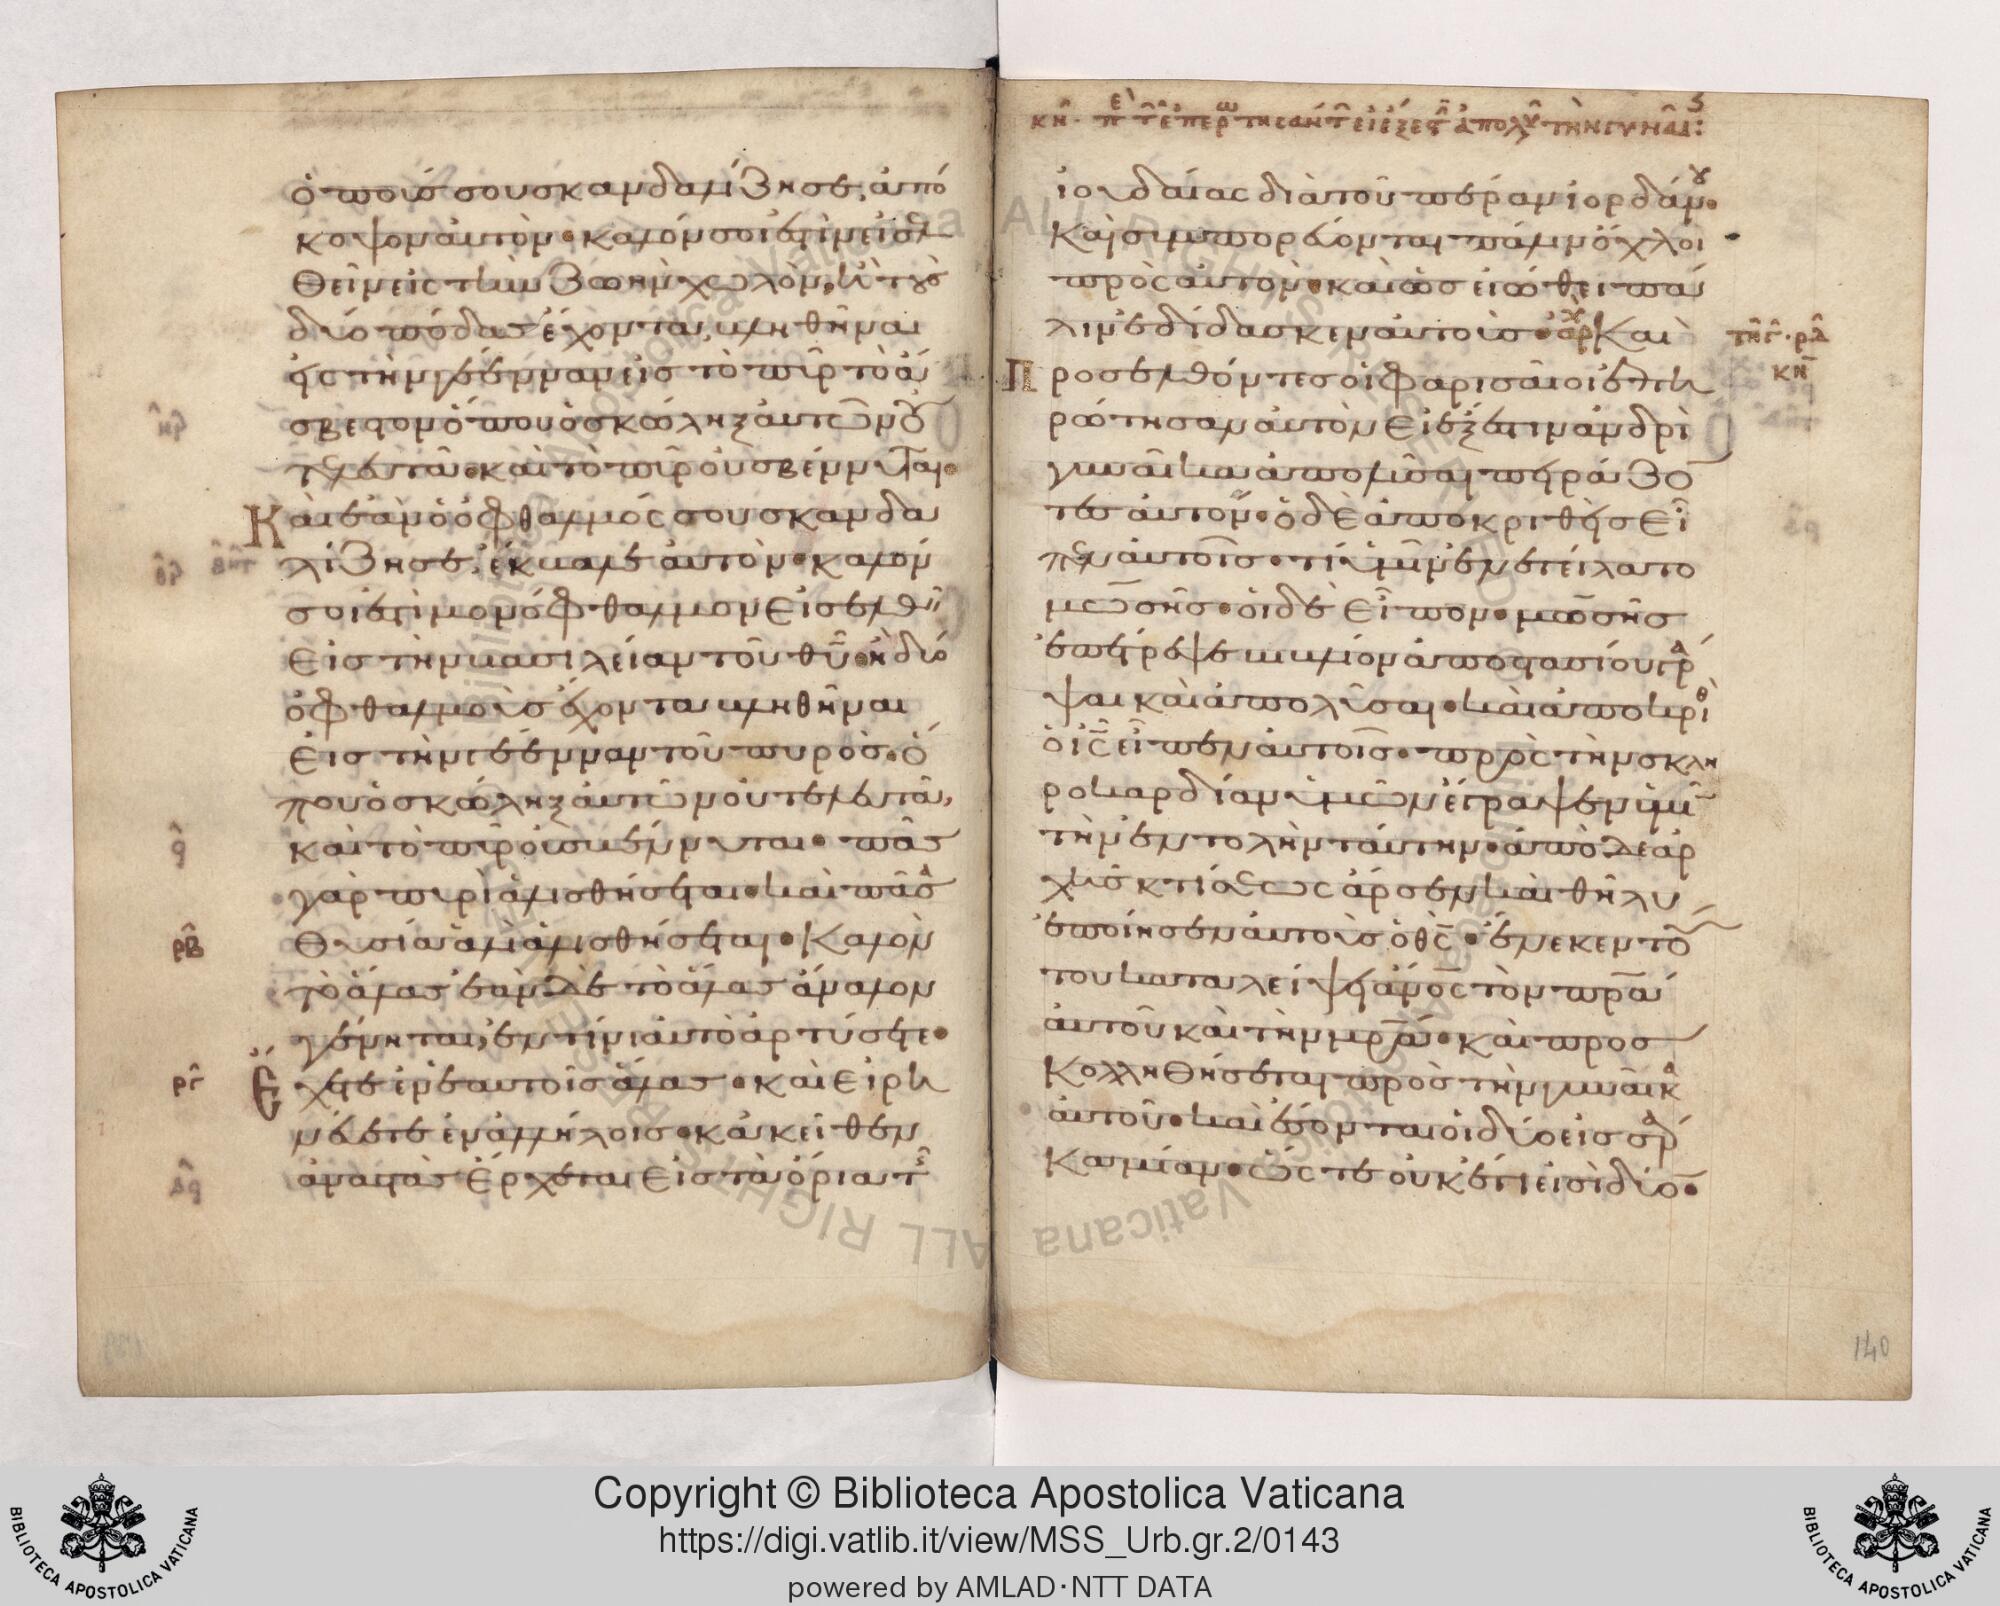 ὁ ποῦσ σου σκανδαλίζησε, ἀπό
κοψον αὐτόν· καλόν σοι ἐστὶν εἰσελ
θεῖν εἰς τὴν ζωὴν χωλὸν, ἢ τοὺσ
δύο πόδασ ἔχοντα, βληθῆναι
εἰς τὴν γέενναν εἰσ τὸ πῦρ τὸ ἄ
σβεστον ὅπου ὁ σκώληξ αὐτῶν οὐ
τελευτᾶ· καὶ τὸ πῦρ οὐ σβέννυται·
Καὶ ἐὰν ὁ ὀφθαλμός σου σκανδα
λίζησε, ἔκβαλε αὐτόν· καλόν
σοι ἐστὶ μονόφθαλμον εἰσελθεῖν
εἰσ τὴν βασιλείαν τοῦ θυ· ἢ δύο
ὀφθαλμοὺσ ἔχοντα βληθῆναι
εἰσ τὴν γέενναν τοῦ πυρόσ· ὅ
που ὁ σκώληξ αὐτῶν οὐ τελευτᾶ,
καὶ τὸ πῦρ οὐ σβέννυται· πᾶσ
γὰρ πυρὶ ἁλισθήσεται· καὶ πᾶσα
θυσία ἁλὶ ἁλισθήσεται· Καλὸν
τὸ ἅλασ ἐὰν δὲ τὸ ἅλασ ἄναλον
γένηται, ἐν τίνι αὐτὸ ἀρτύσετε·
Ἔχετε ἐν ἑαυτοῖσ ἅλασ· καὶ εἰρη
νεύετε ἐν ἀλλήλοισ· κἀκεῖθεν
ἀναστὰσ ἔρχεται εἰσ τὰ ὅρια τῆσ
ϟ
ρβ
ργ
κη · π τ ἐπερωτησάντ εἰ ἔξεστ ἀπολῦσ τὴν γυναῖ:
ἰουδαίας διὰ τοῦ πέραν ἰορδάνου·
Καὶ συμπορεύονται πάλιν ὄχλοι
πρὸς αὐτόν· καὶ ὡσ εἰώθει πά
λιν ἐδίδασκεν αὐτούσ· αρχ Καὶ
Προσελθόντεσ οἱ φαρισαῖοι ἐπη
ρώτησαν αὐτὸν εἰ ἔξεστιν ἀνδρὶ
γυναῖκα ἀπολῦσαι πειράζο
τεσ αὐτόν· ὁ δὲ ἀποκριθεὶσ εἶ
πεν αὐτοῖσ· τί ὑμῖν ἐνετείλατο
μωσῆσ· οἱ δὲ εἶπον· μωσῆσ
ἐπέτρεψε βιβλίον ἀποστασίου γρά
ψαι καὶ ἀπολῦσαι· καὶ ἀποκριθ
ὁ ις εἶπεν αὐτοῖσ· πρὸς τὴν σκλη
ροκαρδίαν ὑμῶν ἔγραψεν ὑμῖ
τὴν ἐντολὴν ταύτην· ἀπὸ δὲ ἀρ
χῆσ κτίσεως ἄρσεν καὶ θῆλυ
ἐποίησεν αὐτοὺσ ὁ θς· ἕνεκεν τού
του καταλείψει ἄνος τὸν πρα
αὐτοῦ καὶ τὴν μρα· καὶ προσ
Κολληθήσεται πρὸσ τὴν γυναῖκα
αὐτοῦ· καὶ ἔσονται οἱ δύο εἰσ σάρ
Κα μίαν· ὥς τε οὐκ ἔτι εἰσὶ δύο·
τῆς · ρδ
κη
140
Copyright © Biblioteca Apostolica Vaticana
https://digi.vatlib.it/view/MSS_Urb.gr.2/0143
powered by AMLAD·NTT DATA
BIBLIOTECA APOSTOLICA VATICANA
BIBLIOTECA APOSTOLICA VATICANA